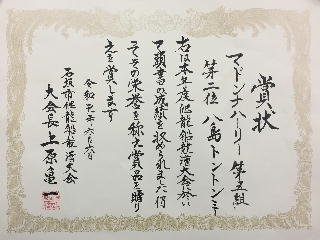 賞状
マドンナハーリー 第五組
第二位 八島トントンミー
右は本年度爬龍船競漕大会に於い
て頭書の成績を収められました仍
てその栄誉を称え賞品を贈り
之を賞します
令和元年六月六日
石垣市爬龍船競漕大会
大会長 上原亀一